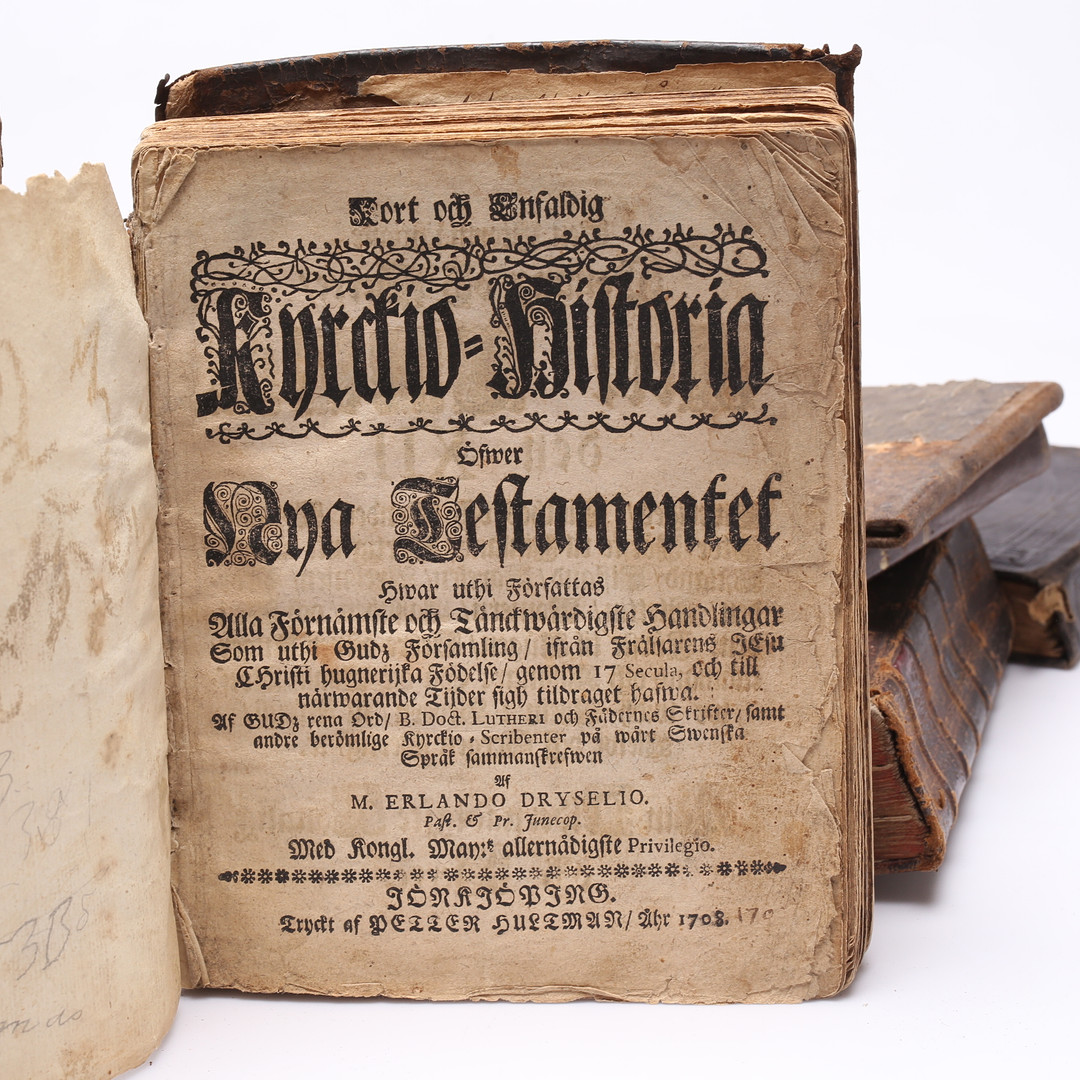 Kort och Enfaldig
Kyrckio-Historia
Öfwer
Nya Testamentet
Hwar uthi Författas
Alla Förnämste och Tänckwärdigste Handlingar
Som uthi Gudz Församling/ ifrån Frälsarens JEsu
CHristi hugnerijka Födelse/ genom 17 Secula, och till
närwarande Tijder sigh tildraget hafwa.
Af GUDz rena Ord/ B. Doct. LUTHERI och Fädernes Skrifter/ samt
andre berömlige Kyrckio-Scribenter på wårt Swenska
Språk sammanskrefwen
Af
M. ERLANDO DRYSELIO.
Past. & Pr. Junecop.
Med Kongl. May:tz allernådigste Privilegio.
JÖNKJÖPING.
Tryckt af PETTER HULTMAN/ Åhr 1708.